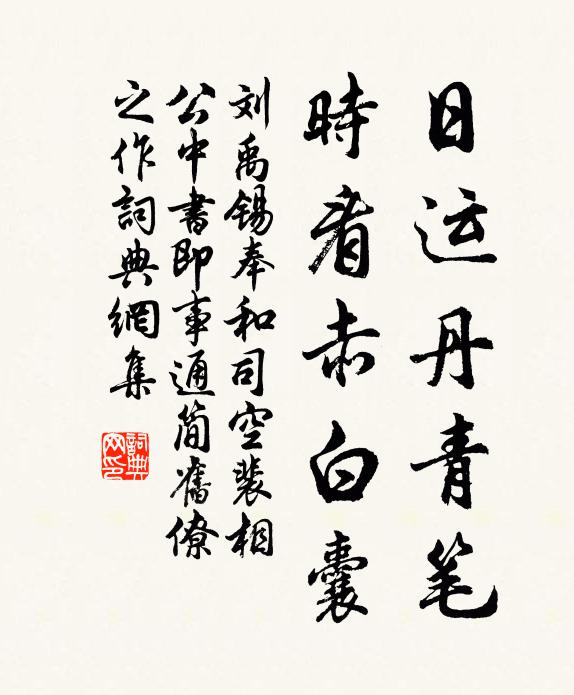 日运丹青笔
時看赤白囊
刘禹锡奉和司空裴相
公中書即事通简舊僚
之作詞典網集
詞典网印